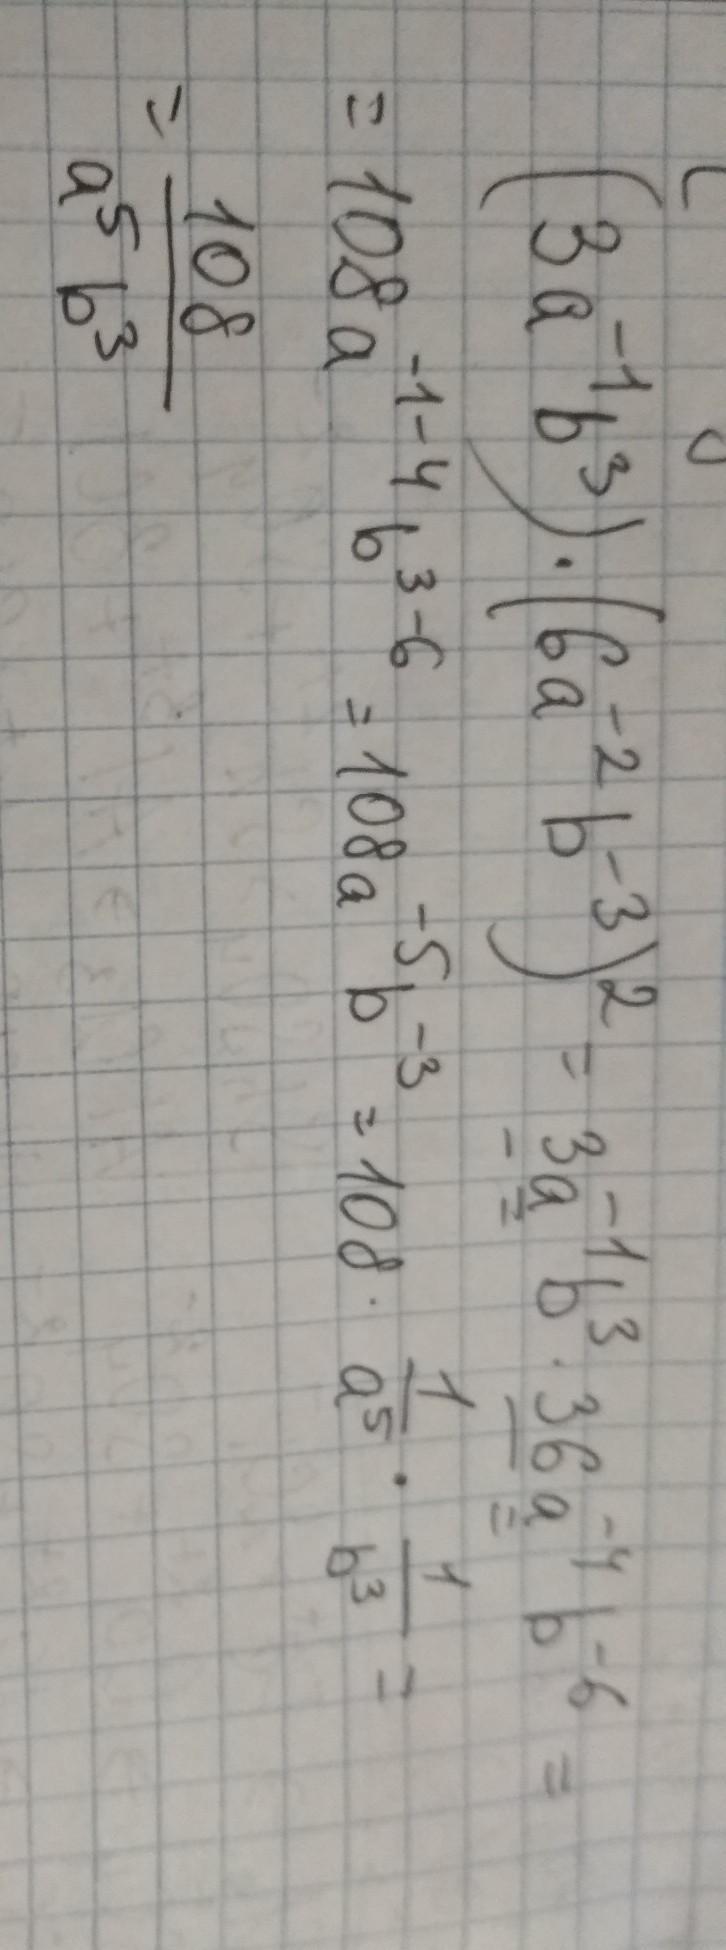 (3a⁻¹b³)·(6a⁻²b⁻³)² = 3a⁻¹b³·36a⁻⁴b⁻⁶ =
= 108a⁻¹⁻⁴b³⁻⁶ = 108a⁻⁵b⁻³ = 108·1/a⁵·1/b³ =
= 108/a⁵b³